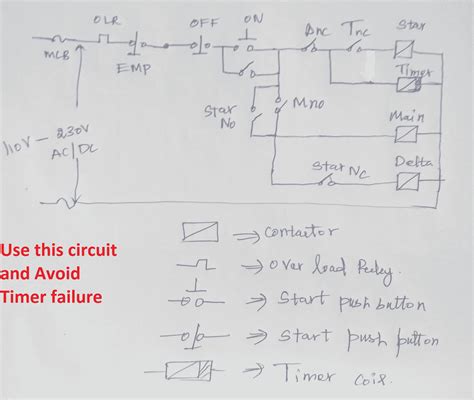 OLR
OFF
ON
Dnc
Tnc
Star
MCB
EMP
Timer
Star
No
Mno
Main
110V - 230V
AC/DC
Star NC
Delta
Use this circuit
and Avoid
Timer failure
⇒ contactor
⇒ over load Relay.
⇒ Start push button
⇒ Start push button
⇒ Timer coil.